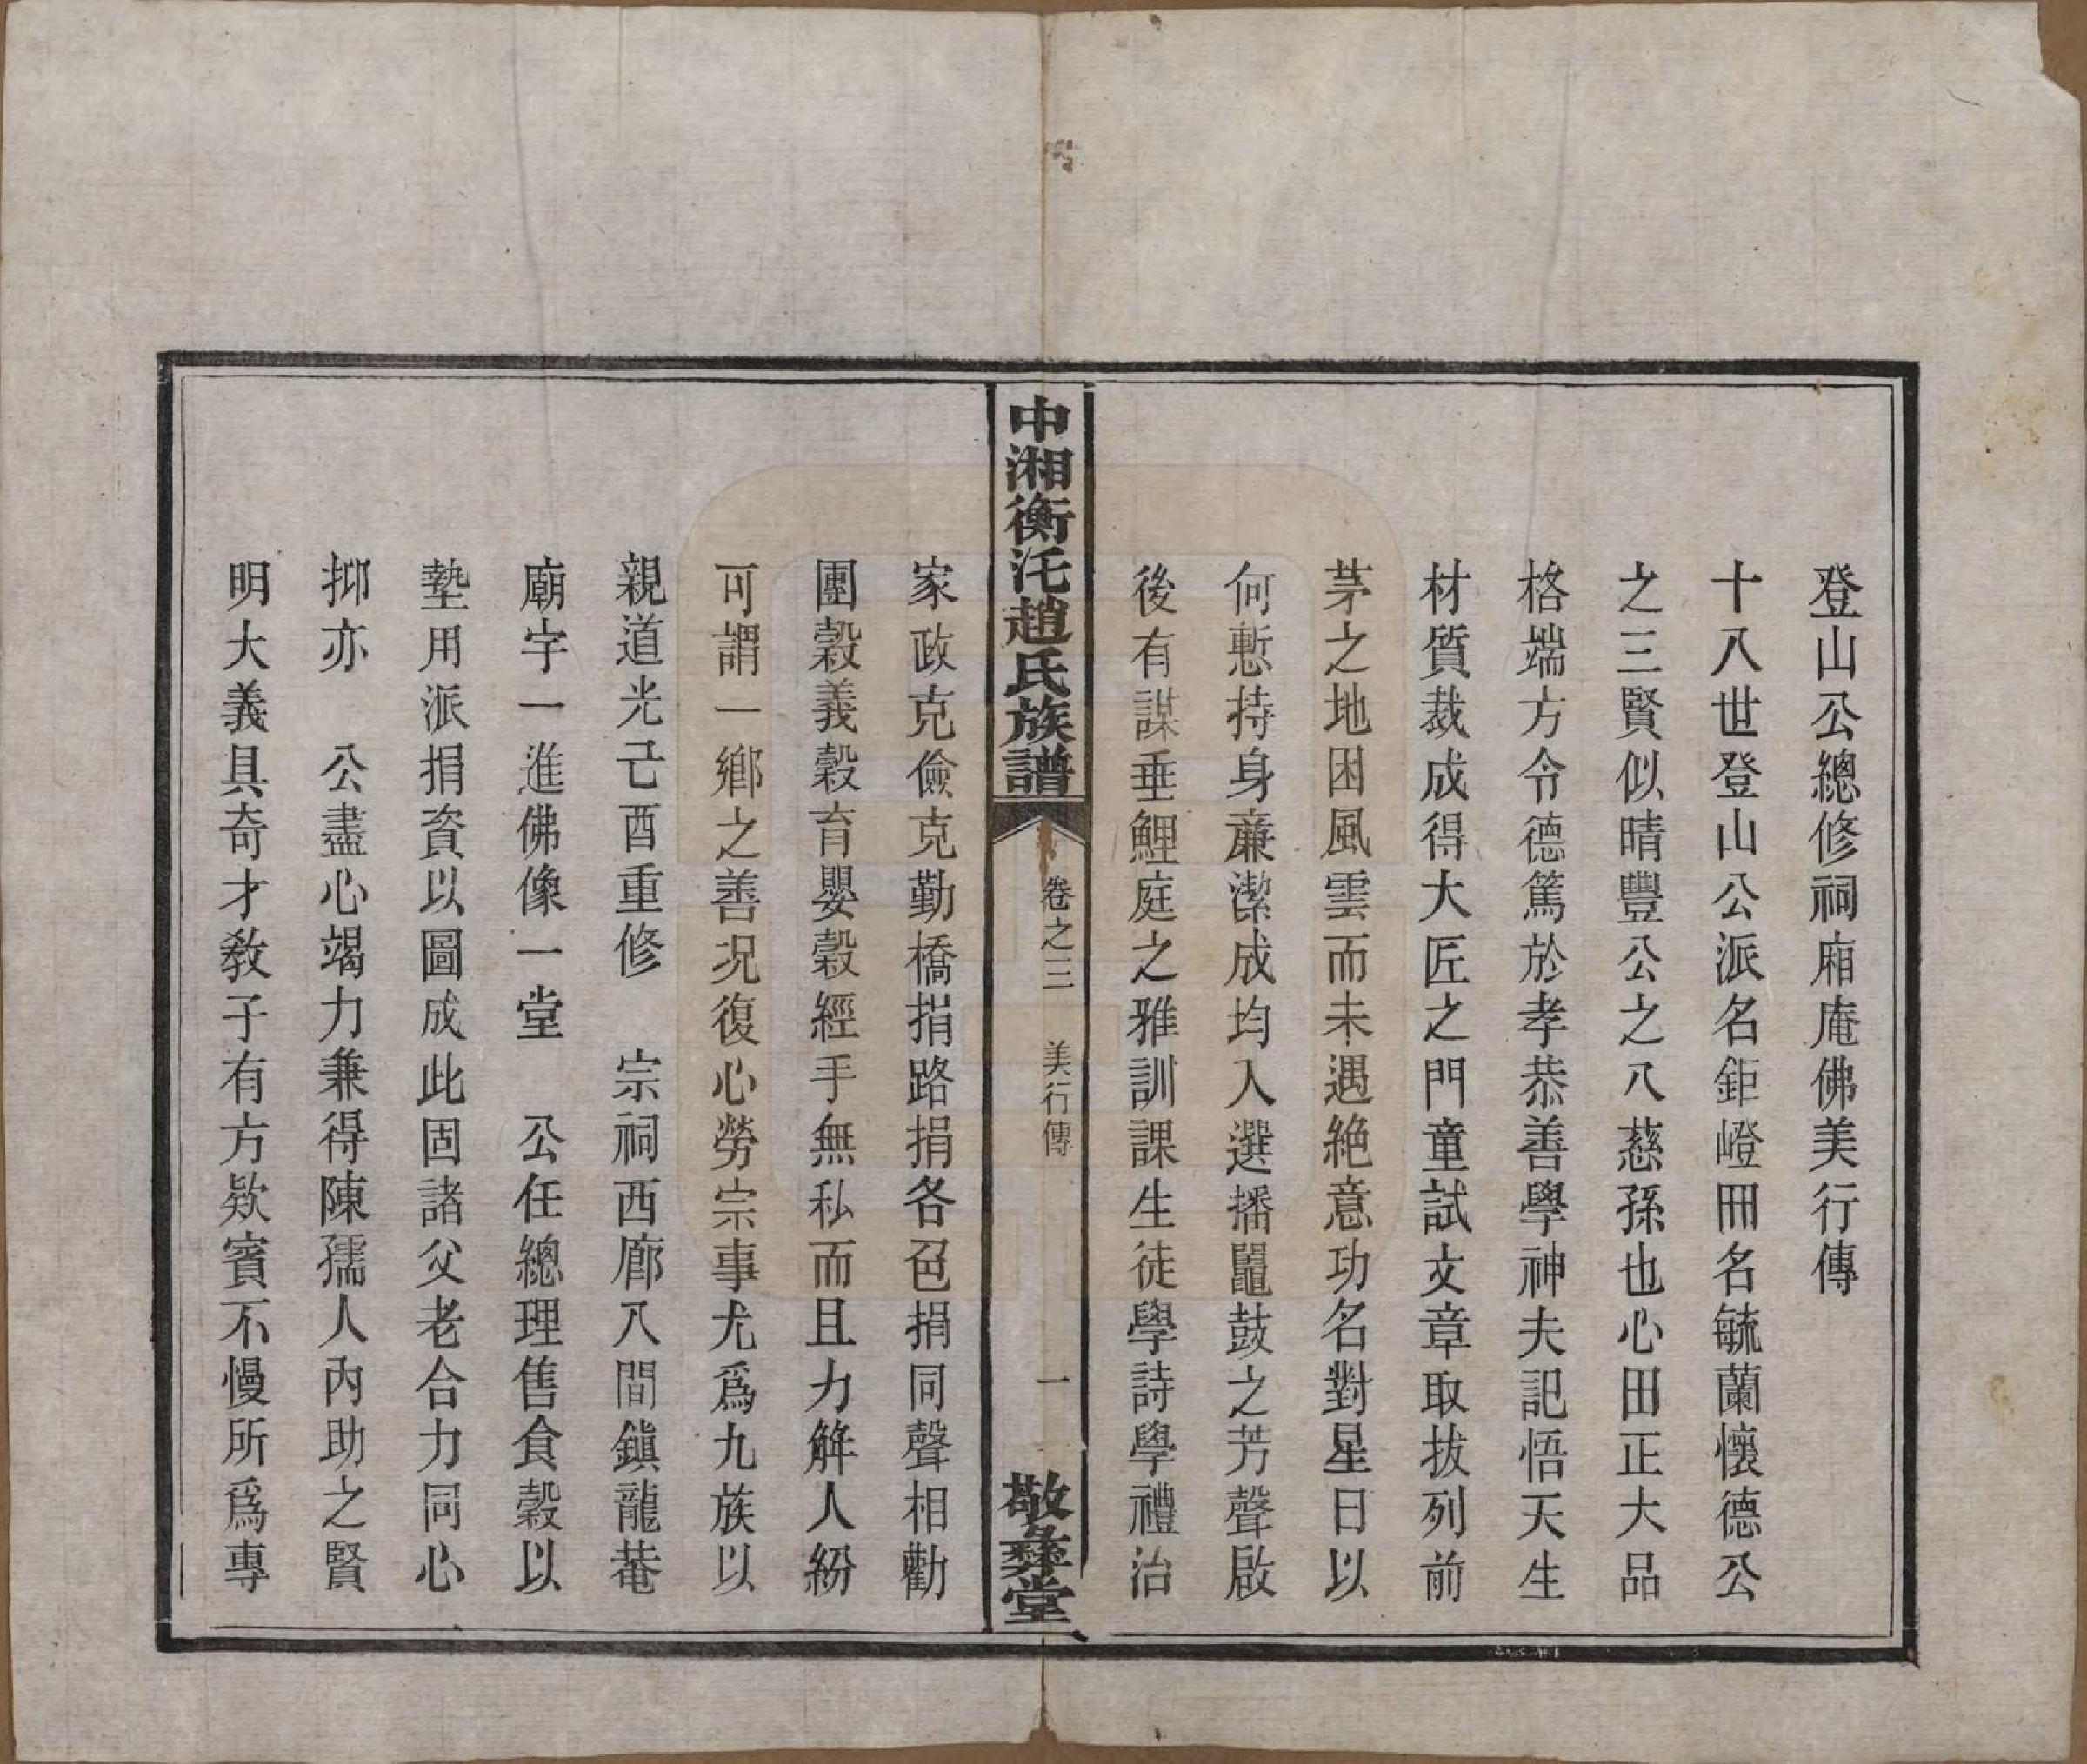 登山公總修祠廂庵佛美行傳
十八世登山公派名鉅嶝冊名毓蘭懷德公
之三賢似晴豐公之八慈孫也心田正大品
格端方令德篤於孝恭善學神夫記悟天生
材質裁成得大匠之門童試文章取拔列前
茅之地困風雲而未遇絶意功名對星日以
何慙持身廉潔成均入選播鼉鼓之芳聲啟
後有謀垂鯉庭之雅訓課生徒學詩學禮治
中湘衡汑趙氏族譜
卷之三 美行傳
一
敬彝堂
家政克儉克勤橋捐路捐各色捐同聲相勸
團穀義穀育嬰穀經手無私而且力解人紛
可謂一鄉之善况復心勞宗事尤爲九族以
親道光己酉重修 宗祠西廊八間鎮龍菴
廟宇一進佛像一堂 公任總理售食穀以
墊用派捐資以圖成此固諸父老合力同心
抑亦 公盡心竭力兼得陳孺人內助之賢
明大義具奇才教子有方欵賓不慢所爲專